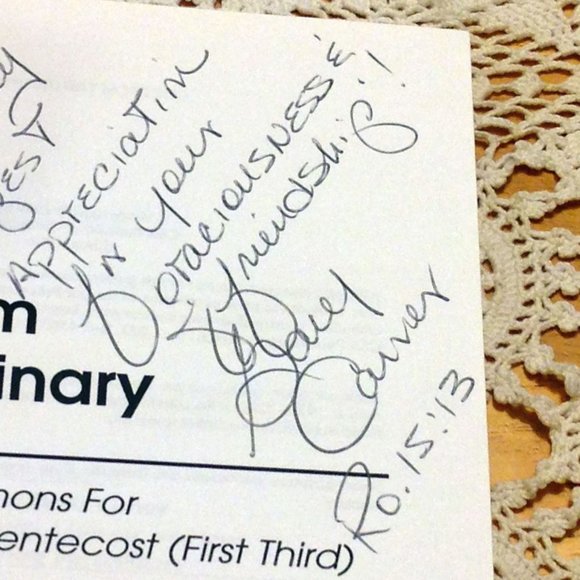 BEST
APPRECIATION
for your
Graciousness &
friendship!!
Carver
Ro. 15:13
m
inary
mons For
entecost (First Third)